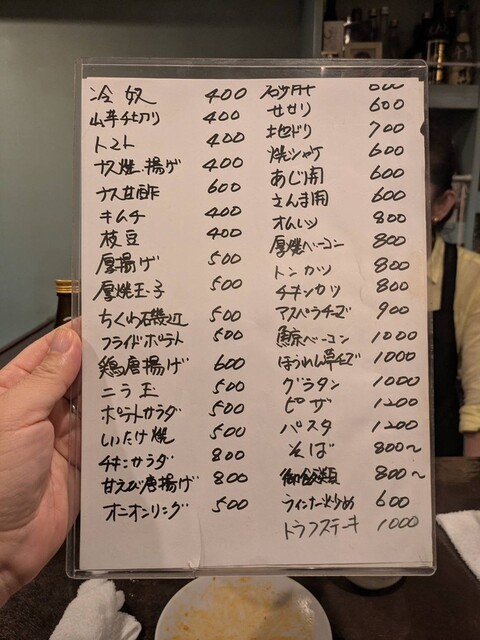 冷奴 400
山芋千切り 400
トマト 400
ナス焼.揚げ 400
ナス甘酢 600
キムチ 400
枝豆 400
厚揚げ 500
厚焼玉子 500
ちくわ磯辺 500
フライドポテト 500
鶏唐揚げ 600
ニラ玉 500
ポテトサラダ 500
しいたけ焼 500
チキンサラダ 800
甘えび唐揚げ 800
オニオンリング 500
砂肝
せせり 600
地どり 700
焼シャケ 600
あじ開 600
さんま開 600
オムレツ 800
厚焼ベーコン 800
トンカツ 800
チキンカツ 800
アスパラチーズ 900
鯨ベーコン 1000
ほうれん草チーズ 1000
グラタン 1000
ピザ 1200
パスタ 1200
そば 800〜
御飯類 800〜
ウィンナー炒め 600
トラフステーキ 1000